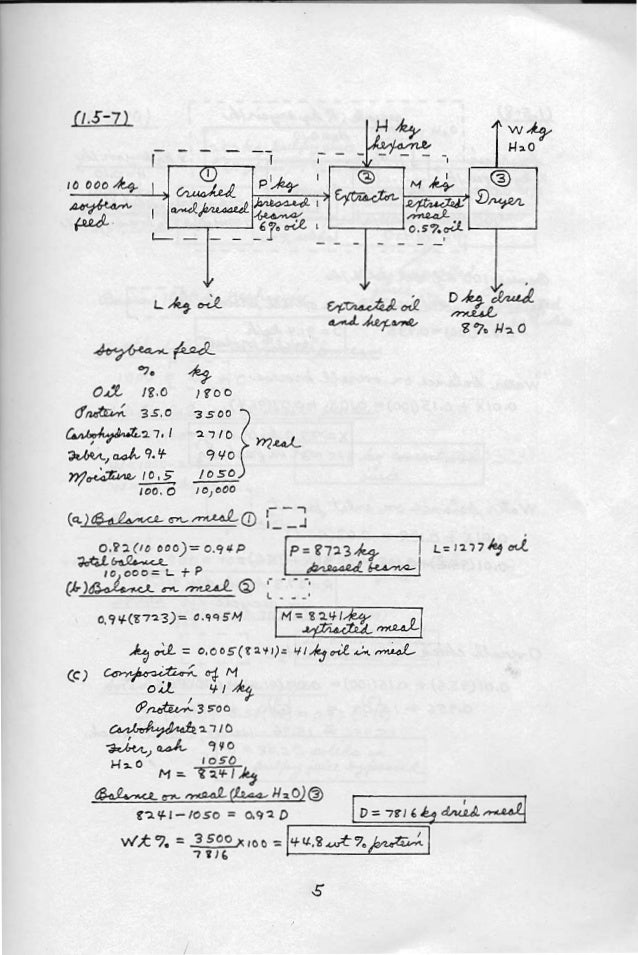 (1.5-7)
H kg
hexane
W kg
H2O
10 000 kg
soybean
feed.
①
Crushed
and pressed
P kg
pressed
beans
6% oil
②
Extractor
M kg
extracted
meal
0.5% oil
③
Dryer
L kg oil
Extracted oil
and hexane
D kg dried
meal
8% H2O
soybean feed
% kg
Oil 18.0 1800
Protein 35.0 3500
Carbohydrate 27.1 2710
Fiber, ash 9.4 940
Moisture 10.5 1050
100.0 10,000
meal
(a) Balance on meal ①
0.82(10 000) = 0.94P
P = 8723 kg
pressed beans
L = 1277 kg oil
Total balance
10,000 = L + P
(b) Balance on meal ②
0.94(8723) = 0.995M
M = 8241 kg
extracted meal
kg oil = 0.005(8241) = 41 kg oil in meal
(c) Composition of M
Oil 41 kg
Protein 3500
Carbohydrate 2710
Fiber, ash 940
H2O 1050
M = 8241 kg
Balance on meal (less H2O) ③
8241-1050 = 0.92 D
D = 7816 kg dried meal
Wt % = 3500/7816 x 100 = 44.8 wt % protein
5